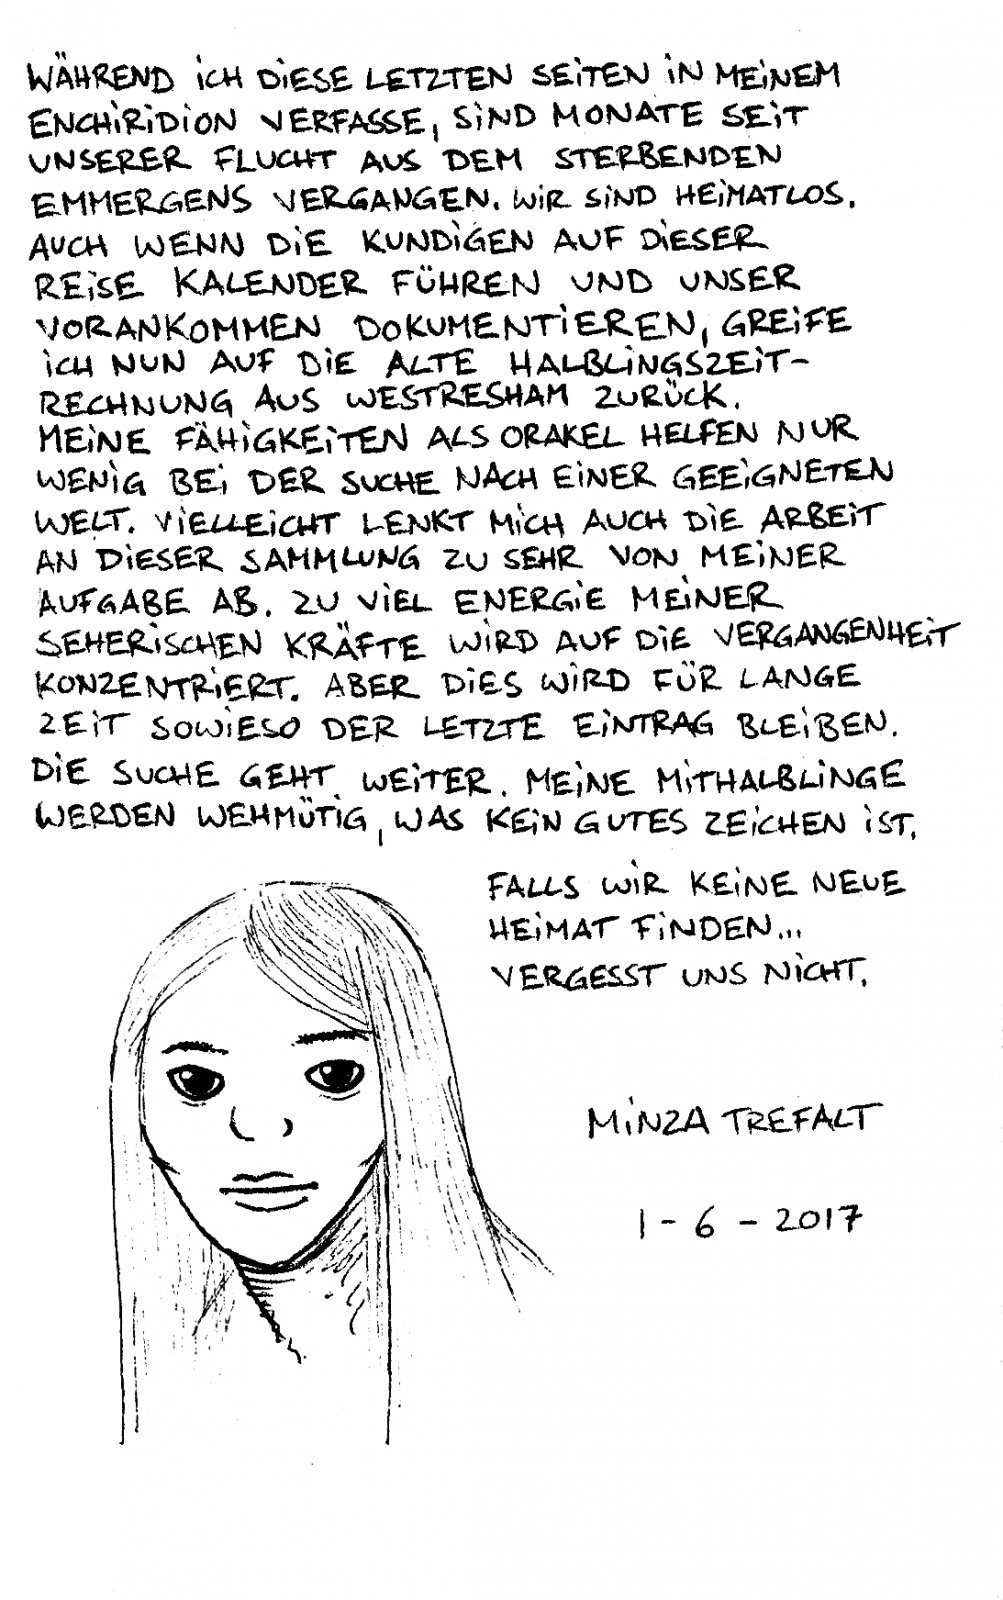 WÄHREND ICH DIESE LETZTEN SEITEN IN MEINEM
ENCHIRIDION VERFASSE, SIND MONATE SEIT
UNSERER FLUCHT AUS DEM STERBENDEN
EMMERGENS VERGANGEN. WIR SIND HEIMATLOS.
AUCH WENN DIE KUNDIGEN AUF DIESER
REISE KALENDER FÜHREN UND UNSER
VORANKOMMEN DOKUMENTIEREN, GREIFE
ICH NUN AUF DIE ALTE HALBLINGSZEIT-
RECHNUNG AUS WESTRESHAM ZURÜCK.
MEINE FÄHIGKEITEN ALS ORAKEL HELFEN NUR
WENIG BEI DER SUCHE NACH EINER GEEIGNETEN
WELT. VIELLEICHT LENKT MICH AUCH DIE ARBEIT
AN DIESER SAMMLUNG ZU SEHR VON MEINER
AUFGABE AB. ZU VIEL ENERGIE MEINER
SEHERISCHEN KRÄFTE WIRD AUF DIE VERGANGENHEIT
KONZENTRIERT. ABER DIES WIRD FÜR LANGE
ZEIT SOWIESO DER LETZTE EINTRAG BLEIBEN.
DIE SUCHE GEHT WEITER. MEINE MITHALBLINGE
WERDEN WEHMÜTIG, WAS KEIN GUTES ZEICHEN IST.
FALLS WIR KEINE NEUE
HEIMAT FINDEN...
VERGESST UNS NICHT.
MINZA TREFALT
1-6-2017